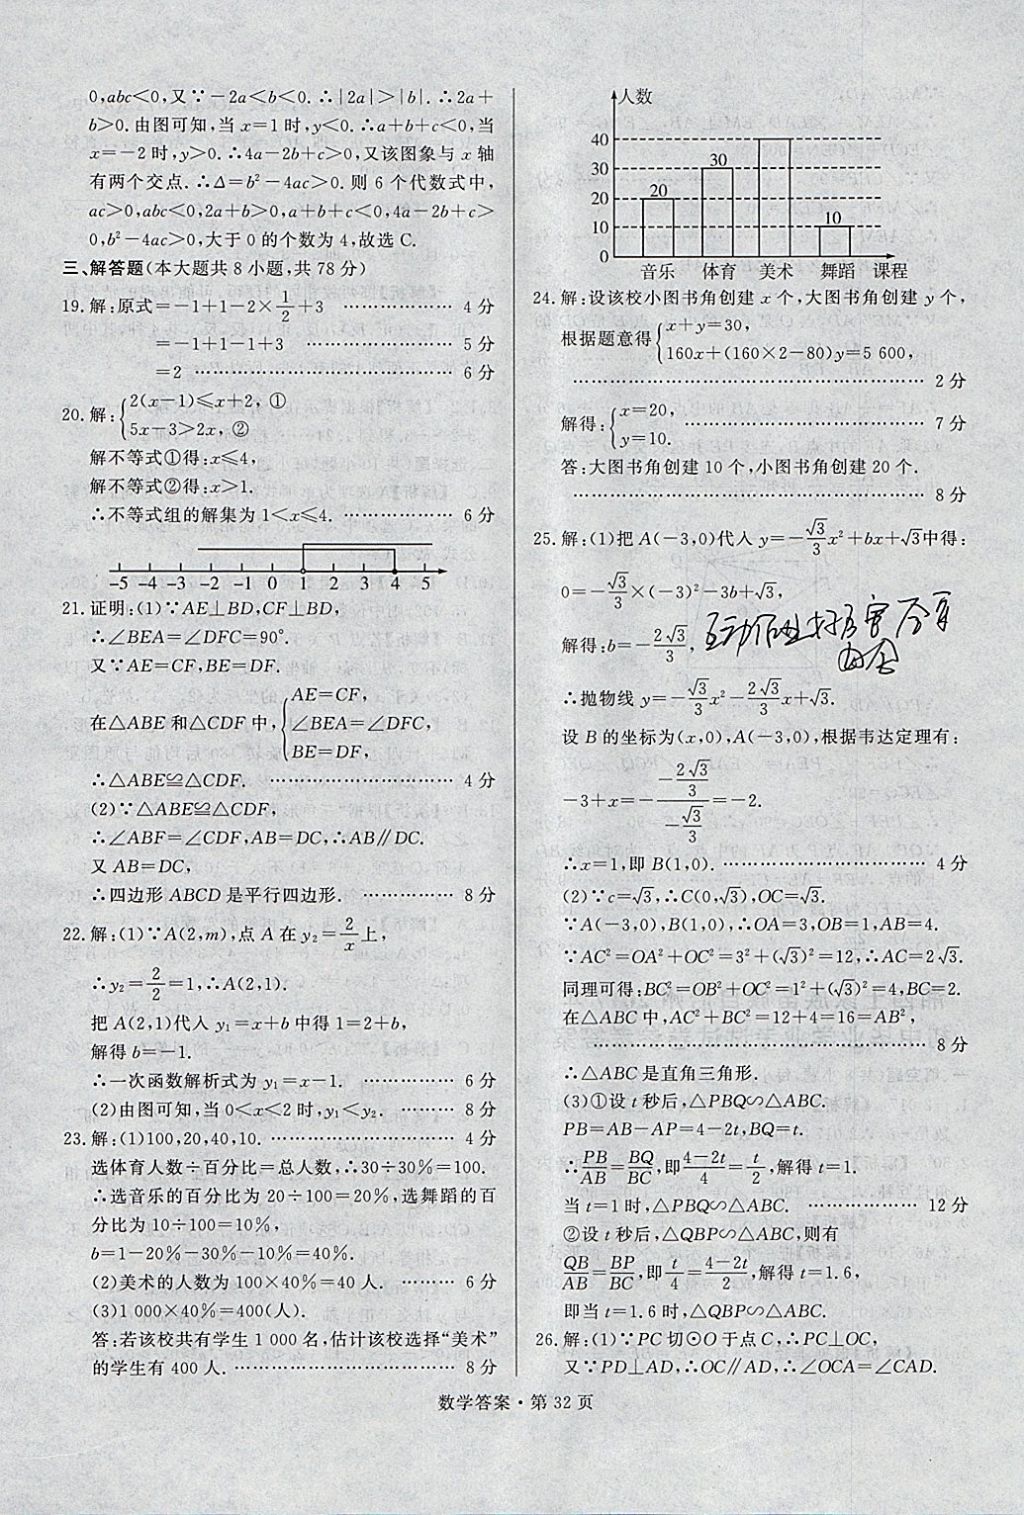 0,abc<0,又∵-2a<b<0.∴|2a|>|b|.∴2a+
b>0.由图可知,当x=1时,y<0.∴a+b+c<0,当
x=-2时,y>0.∴4a-2b+c>0,又该图象与x轴
有两个交点.∴Δ=b²-4ac>0.则6个代数式中,
ac>0,abc<0,2a+b>0,a+b+c<0,4a-2b+c>
0,b²-4ac>0,大于0的个数为4,故选C.
三、解答题(本大题共8小题,共78分)
19.解:原式=-1+1-2×1/2+3 …………………… 4分
=-1+1-1+3 …………………… 5分
=2 …………………………………… 6分
20.解:{2(x-1)≤x+2,①
5x-3>2x,②
解不等式①得:x≤4,
解不等式②得:x>1.
∴不等式组的解集为1<x≤4. ……………… 6分
-5 -4 -3 -2 -1 0 1 2 3 4 5
21.证明:(1)∵AE⊥BD,CF⊥BD,
∴∠BEA=∠DFC=90°.
又∵AE=CF,BE=DF.
在△ABE和△CDF中,{AE=CF,
∠BEA=∠DFC,
BE=DF,
∴△ABE≌△CDF. ………………………… 4分
(2)∵△ABE≌△CDF,
∴∠ABF=∠CDF,AB=DC,∴AB∥DC.
又AB=DC,
∴四边形ABCD是平行四边形. …………… 8分
22.解:(1)∵A(2,m),点A在y₂=2/x上,
∴y₂=2/2=1,∴A(2,1).
把A(2,1)代入y₁=x+b中得1=2+b,
解得b=-1.
∴一次函数解析式为y₁=x-1. …………… 6分
(2)由图可知,当0<x<2时,y₁<y₂. ……… 8分
23.解:(1)100,20,40,10. ………………………… 4分
选体育人数÷百分比=总人数,∴30÷30%=100.
∴选音乐的百分比为20÷100=20%,选舞蹈的百
分比为10÷100=10%,
b=1-20%-30%-10%=40%.
(2)美术的人数为100×40%=40人. ……… 6分
(3)1 000×40%=400(人).
答:若该校共有学生1 000名,估计该校选择“美术”
的学生有400人. ………………………………… 8分
人数
40
30
20
10
0
20
30
10
音乐 体育 美术 舞蹈 课程
24.解:设该校小图书角创建x个,大图书角创建y个,
根据题意得{x+y=30,
160x+(160×2-80)y=5 600,
…………………………………………………… 2分
解得:{x=20,
y=10. …………………………………… 7分
答:大图书角创建10个,小图书角创建20个.
…………………………………………………… 8分
25.解:(1)把A(-3,0)代入y=-√3/3x²+bx+√3中得:
0=-√3/3×(-3)²-3b+√3,
解得:b=-2√3/3,
∴抛物线y=-√3/3x²-2√3/3x+√3.
设B的坐标为(x,0),A(-3,0),根据韦达定理有:
-3+x=-(-2√3/3)/(-√3/3)=-2.
∴x=1,即B(1,0). ……………………………… 4分
(2)∵c=√3,∴C(0,√3),OC=√3.
∵A(-3,0),B(1,0),∴OA=3,OB=1,AB=4.
∵AC²=OA²+OC²=3²+(√3)²=12,∴AC=2√3.
同理可得:BC²=OB²+OC²=1²+(√3)²=4,BC=2.
在△ABC中,AC²+BC²=12+4=16=AB²,
………………………………………………… 8分
∴△ABC是直角三角形.
(3)①设t秒后,△PBQ∽△ABC.
PB=AB-AP=4-2t,BQ=t.
∴PB/AB=BQ/BC,即(4-2t)/4=t/2,解得t=1.
当t=1时,△PBQ∽△ABC. ……………… 12分
②设t秒后,△QBP∽△ABC,则有
QB/AB=BP/BC,即t/4=(4-2t)/2,解得t=1.6,
即当t=1.6时,△QBP∽△ABC.
26.解:(1)∵PC切⊙O于点C,∴PC⊥OC,
又∵PD⊥AD,∴OC∥AD,∴∠OCA=∠CAD.
数学答案·第32页